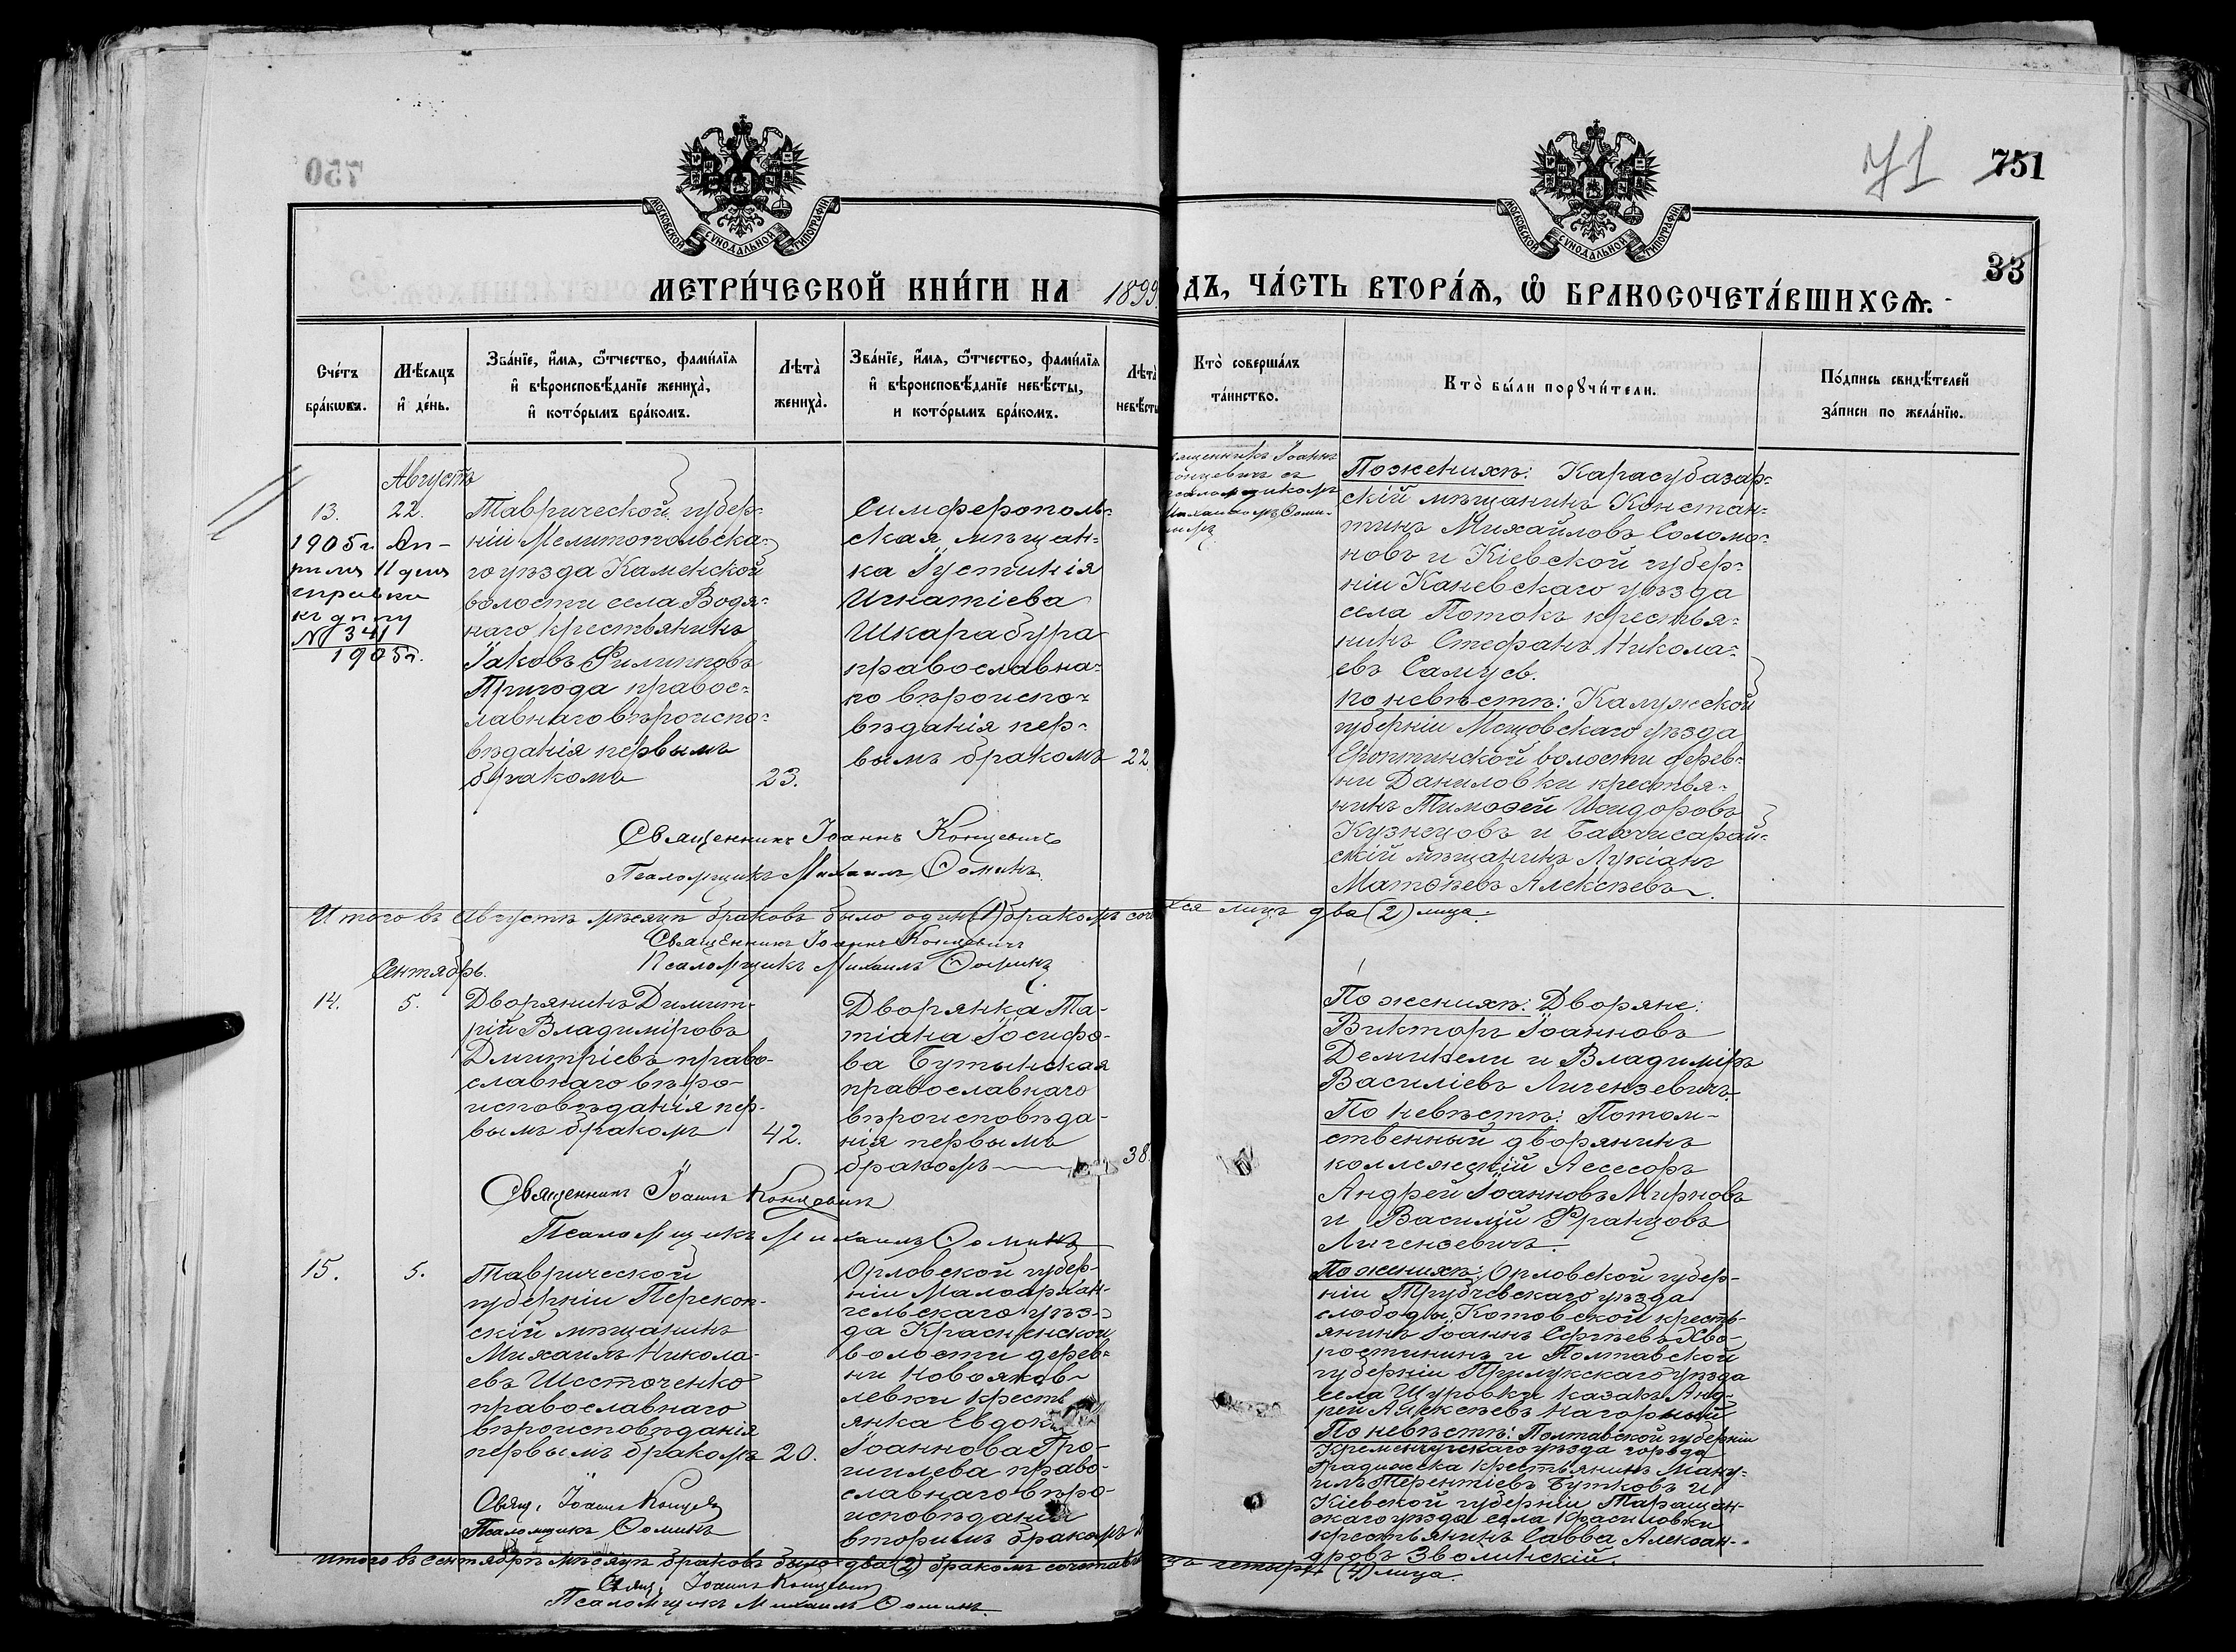 750
71 751
МОСКОВСКОЙ СУНОДАЛЬНОЙ ТИПОГРАФІИ
МОСКОВСКОЙ СУНОДАЛЬНОЙ ТИПОГРАФІИ
33
МЕТРИ́ЧЕСКОЙ КНИ́ГИ НА 1899
ДЪ, ЧА́СТЬ ВТОРА́Ѧ, Ѡ БРАКОСОЧЕТА́ВШИХСѦ.
Сче́тъ
бра́кѡвъ.
Мѣ́сяцъ
и де́нь.
Зва́нїе, и́мя, ѻ́тчество, фами́лїя
и вѣроисповѣ́данїе жениха̀,
и кото́рымъ бра́комъ.
Лѣта̀
жениха̀.
Зва́нїе, и́мя, ѻ́тчество, фами́лїя
и вѣроисповѣ́данїе невѣ́сты,
и кото́рымъ бра́комъ.
Лѣта̀
невѣсты
Кто̀ соверша́лъ
та́инство.
Кто̀ бы́ли порꙋчи́тели.
По́дпись свидѣ́телей
за́писи по жела́нїю.
Августъ
13.
22.
1905 г. Ап-
рѣля 11 дня
справка
къ дѣлу
№ 341
1905 г.
Таврической губер-
ніи Мелитопольска-
го уѣзда Каменской
волости села Водя-
наго крестьянинъ
Іаковъ Филипповъ
Пригода правос-
лавнаго вѣроиспо-
вѣданія первымъ
бракомъ
23.
Симферополь-
ская мѣщан-
ка Іустинія
Игнатіева
Шкарабура
православна-
го вѣроиспо-
вѣданія пер-
вымъ бракомъ
22.
священникъ Іоаннъ
Концевичъ съ
псаломщикомъ
Михаиломъ Ѳоми-
нымъ
По женихѣ: Карасубазар-
скій мѣщанинъ Констан-
тинъ Михайловъ Соломо-
новъ и Кіевской губер-
ніи Каневскаго уѣзда
села Потокъ крестья-
нинъ Стефанъ Никола-
евъ Самусь.
по невѣстѣ: Калужской
губерніи Мещовскаго уѣзда
волости дерев-
ни Даниловки крестья-
нинъ Тимоѳей Исидоровъ
Кузнецовъ и Бахчисарай-
скій мѣщанинъ Лукіанъ
Матѳѣевъ Алексѣевъ.
Священникъ Іоаннъ Концевичъ
Псаломщикъ Михаилъ Ѳоминъ
Итого въ Августѣ мѣсяцѣ браковъ было одинъ (1) бракомъ соче
хся лицъ два (2) лица.
Священникъ Іоаннъ Концевичъ
Псаломщикъ Михаилъ Ѳоминъ
Сентябрь.
14.
5.
Дворянинъ Димит-
рій Владиміровъ
Дмитріевъ право-
славнаго вѣро-
исповѣданія пер-
вымъ бракомъ
42.
Дворянка Та-
тіана Іосифо-
ва Бутынская
православнаго
вѣроисповѣда-
нія первымъ
бракомъ
38.
По женихѣ: Дворяне:
Викторъ Іоанновъ
и Владиміръ
Василіевъ Личензевичъ.
По невѣстѣ: Потом-
ственный дворянинъ
коллежскій Ассесоръ
Андрей Іоанновъ
и Василій Францовъ
Личензевичъ.
Священникъ Іоаннъ Концевичъ
Псаломщикъ Михаилъ Ѳоминъ
15.
5.
Таврической
губерніи Перекоп-
скій мѣщанинъ
Михаилъ Никола-
евъ Шесточенко
православнаго
вѣроисповѣданія
первымъ бракомъ
20.
Орловской губер-
ніи Малоархан-
гельскаго уѣз-
да
волости дерев-
ни Новояков-
левки кресть
янка Евдок
Іоаннова Гро-
шилева право-
славнаго вѣро-
исповѣданія
вторымъ бракомъ
По женихѣ: Орловской губер-
ніи Трубчевскаго уѣзда
слободы Котовской кресть-
янинъ Іоаннъ Сергѣевъ Хво-
ростининъ и Полтавской
губерніи Прилукскаго уѣзда
села Щуровки казакъ Анд-
рей Алексѣевъ Нагорный
По невѣстѣ: Полтавской губерніи
Кременчугскаго уѣзда города
Градижска крестьянинъ Ману-
илъ Терентіевъ Бутковъ и
Кіевской губерніи Таращан-
скаго уѣзда села Красиловки
крестьянинъ Савва Алексан-
дровъ Зволинскій.
Свящ. Іоаннъ Концев
Псаломщикъ Ѳоминъ
Итого въ сентябрѣ мѣсяцѣ браковъ было два (2) бракомъ сочетав
четыре (4) лица.
Свящ. Іоаннъ Концевичъ
Псаломщикъ Михаилъ Ѳоминъ.